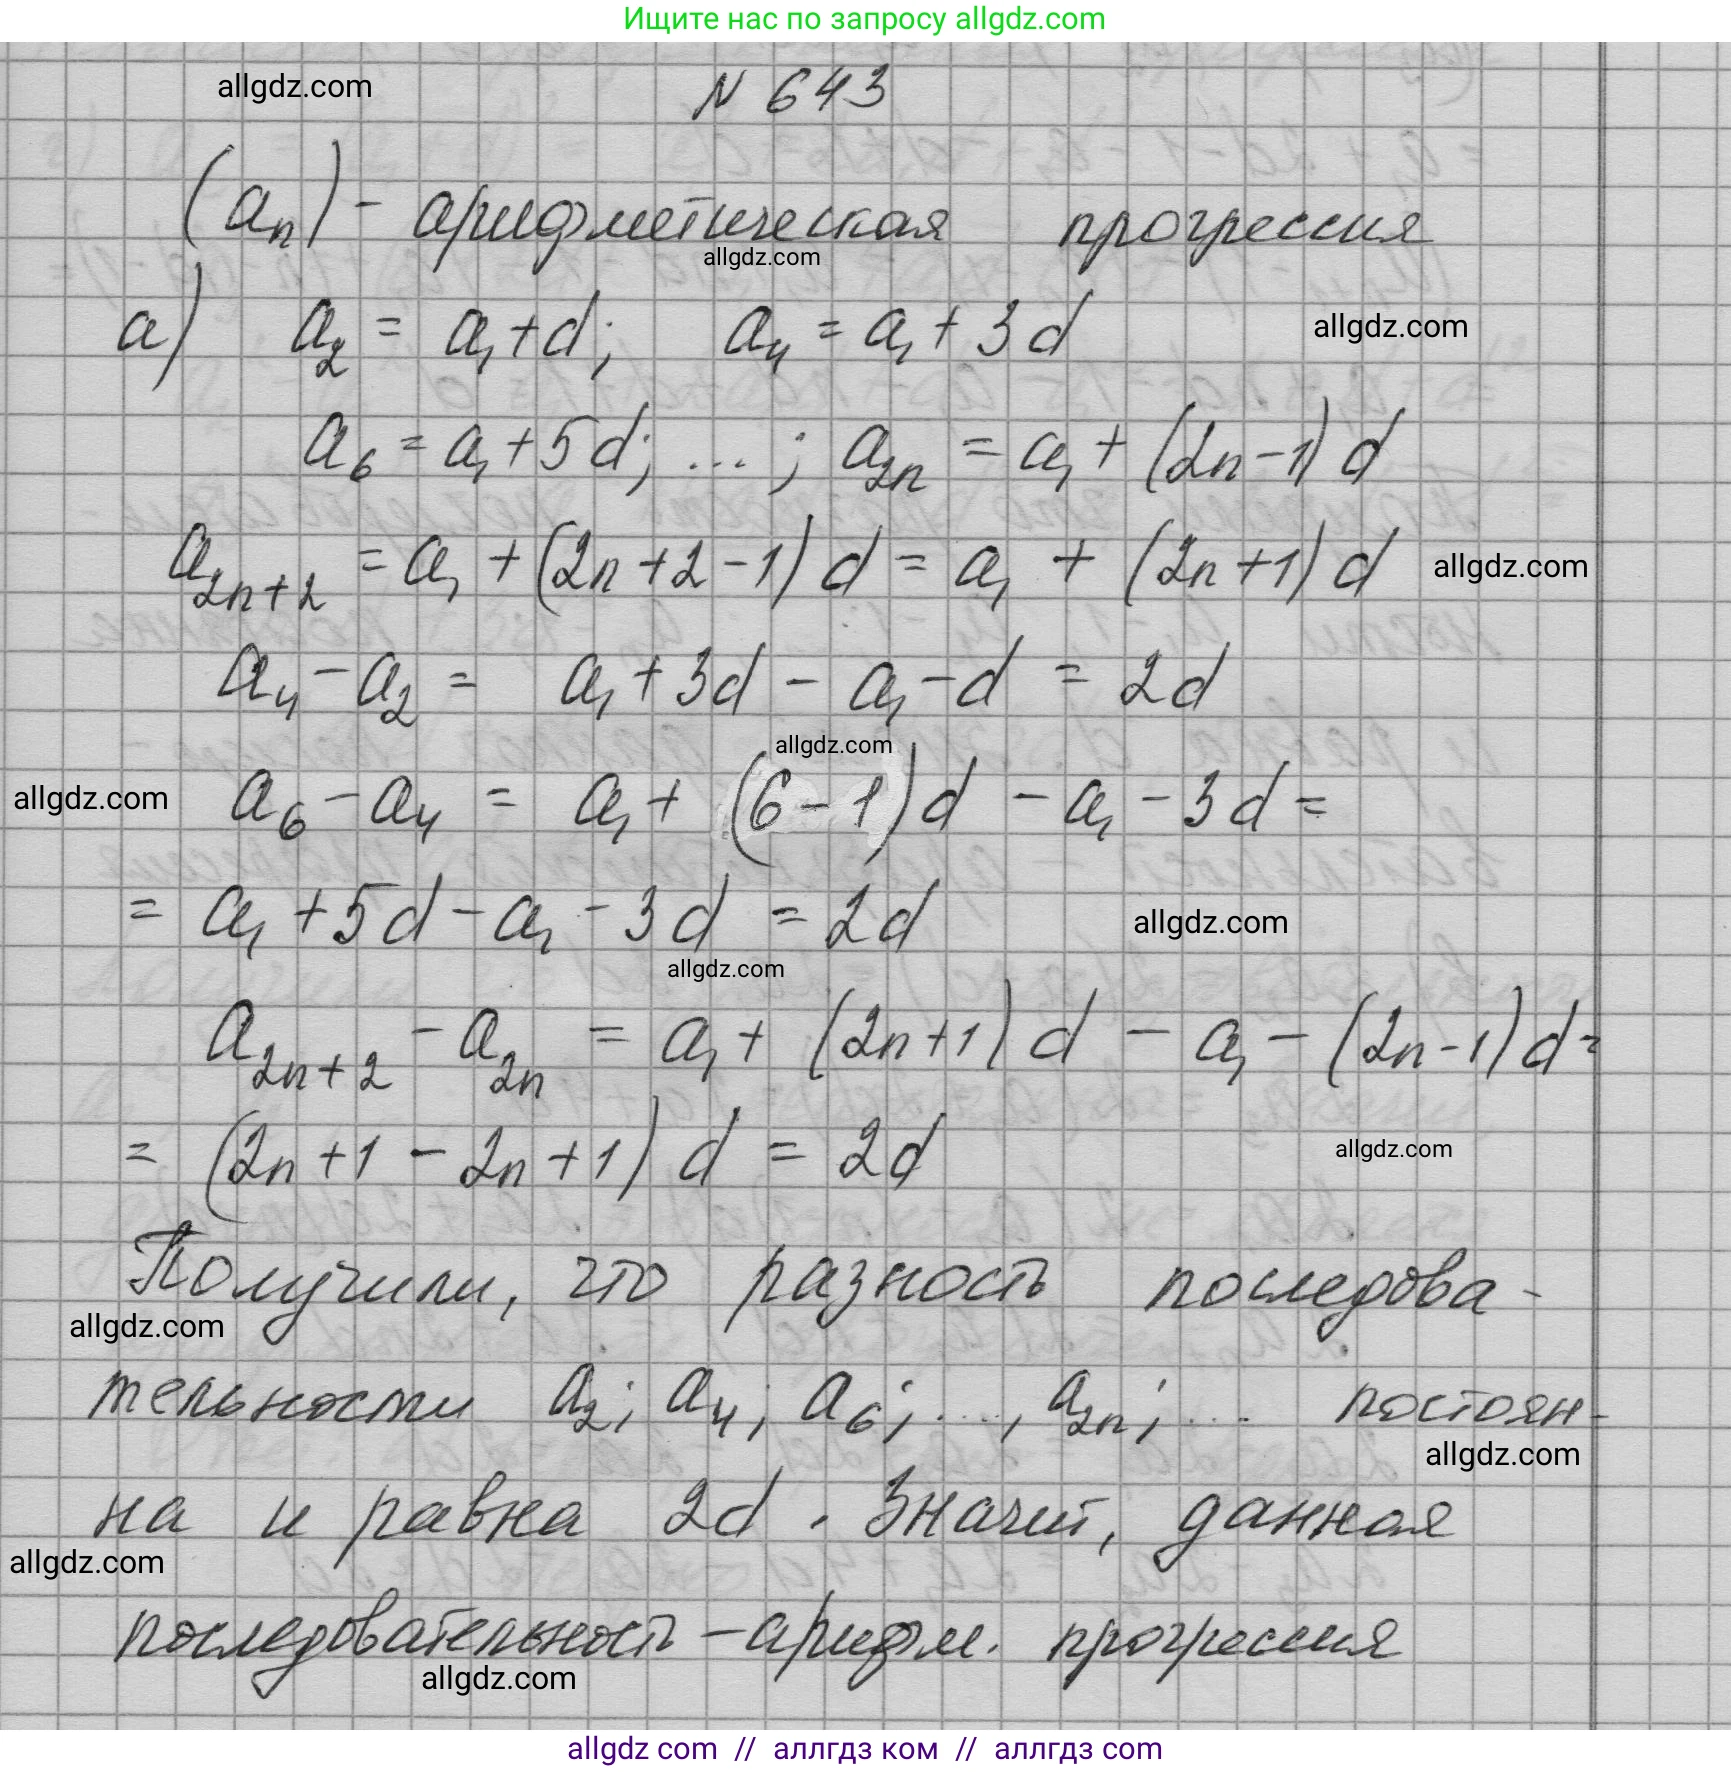 Ищите нас по запросу allgdz.com
allgdz.com
N 643
(aₙ) - арифметическая прогрессия
allgdz.com
а) a₂ = a₁ + d; a₄ = a₁ + 3d
allgdz.com
a₆ = a₁ + 5d; ...; a₂ₙ = a₁ + (2n - 1)d
a₂ₙ₊₂ = a₁ + (2n + 2 - 1)d = a₁ + (2n + 1)d
allgdz.com
a₄ - a₂ = a₁ + 3d - a₁ - d = 2d
allgdz.com
allgdz.com
a₆ - a₄ = a₁ + (6 - 1)d - a₁ - 3d =
= a₁ + 5d - a₁ - 3d = 2d
allgdz.com
allgdz.com
a₂ₙ₊₂ - a₂ₙ = a₁ + (2n + 1)d - a₁ - (2n - 1)d =
= (2n + 1 - 2n + 1)d = 2d
allgdz.com
Получили, что разность последова-
allgdz.com
тельности a₂; a₄; a₆; ..., a₂ₙ; ... постоян-
allgdz.com
на и равна 2d. Значит, данная
allgdz.com
последовательность - арифм. прогрессия
allgdz.com
allgdz com // аллгдз ком // аллгдз com